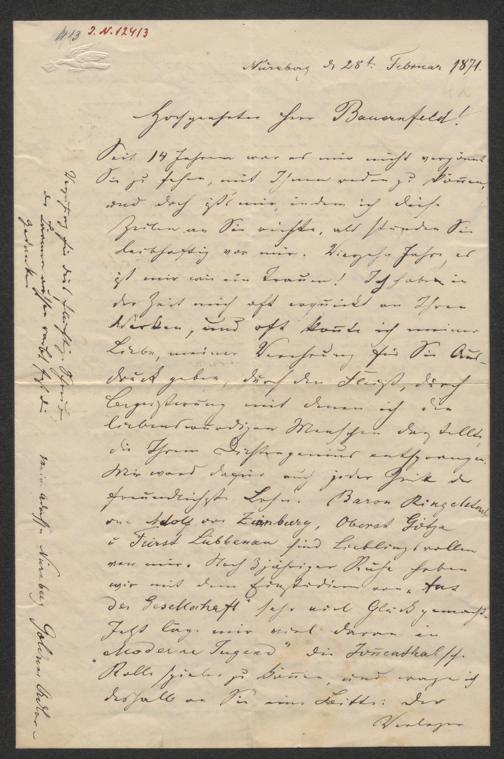 113 I.N. 12413
Nürnberg d 28t. Februar 1871.
Hochgeehrter Herr Bauernfeld!
Seit 14 Jahren war es mir nicht vergönnt
Sie zu sehen, mit Ihnen reden zu können,
und doch ist's mir, indem ich diese
Zeilen an Sie richte, als ständen Sie
leibhaftig vor mir. Vierzehn Jahre, es
ist mir wie ein Traum! Ich habe in
der Zeit mich oft erquickt an Ihren
Werken, und oft konnte ich meiner
Liebe, meiner Verehrung für Sie Aus-
druck geben, durch den Fleiß, durch
Begeisterung mit denen ich die
liebenswürdigen Menschen darstellte,
die Ihrem Dichtergenius entsprangen.
Mir ward dafür auf jeder Seite der
freundlichste Lohn. Baron Ringelstern
Adolf von Zinburg, Oberst Götze
u Fürst Lübbenau sind Lieblingsrollen
von mir. Nach 3jähriger Ruhe haben
wir mit dem Einstudiren von "Aus
der Gesellschaft" sehr viel Glück gemacht.
Jetzt läge mir viel daran in
"Moderne Jugend" die Sonnenthal'sche
Rolle spielen zu können, und wage ich
deshalb an Sie eine Bitte: Der
Verleger
Verzeihung für die flüchtige Schrift,
der
Gedanken
meine Adresse Nürnberg Goldner Adler